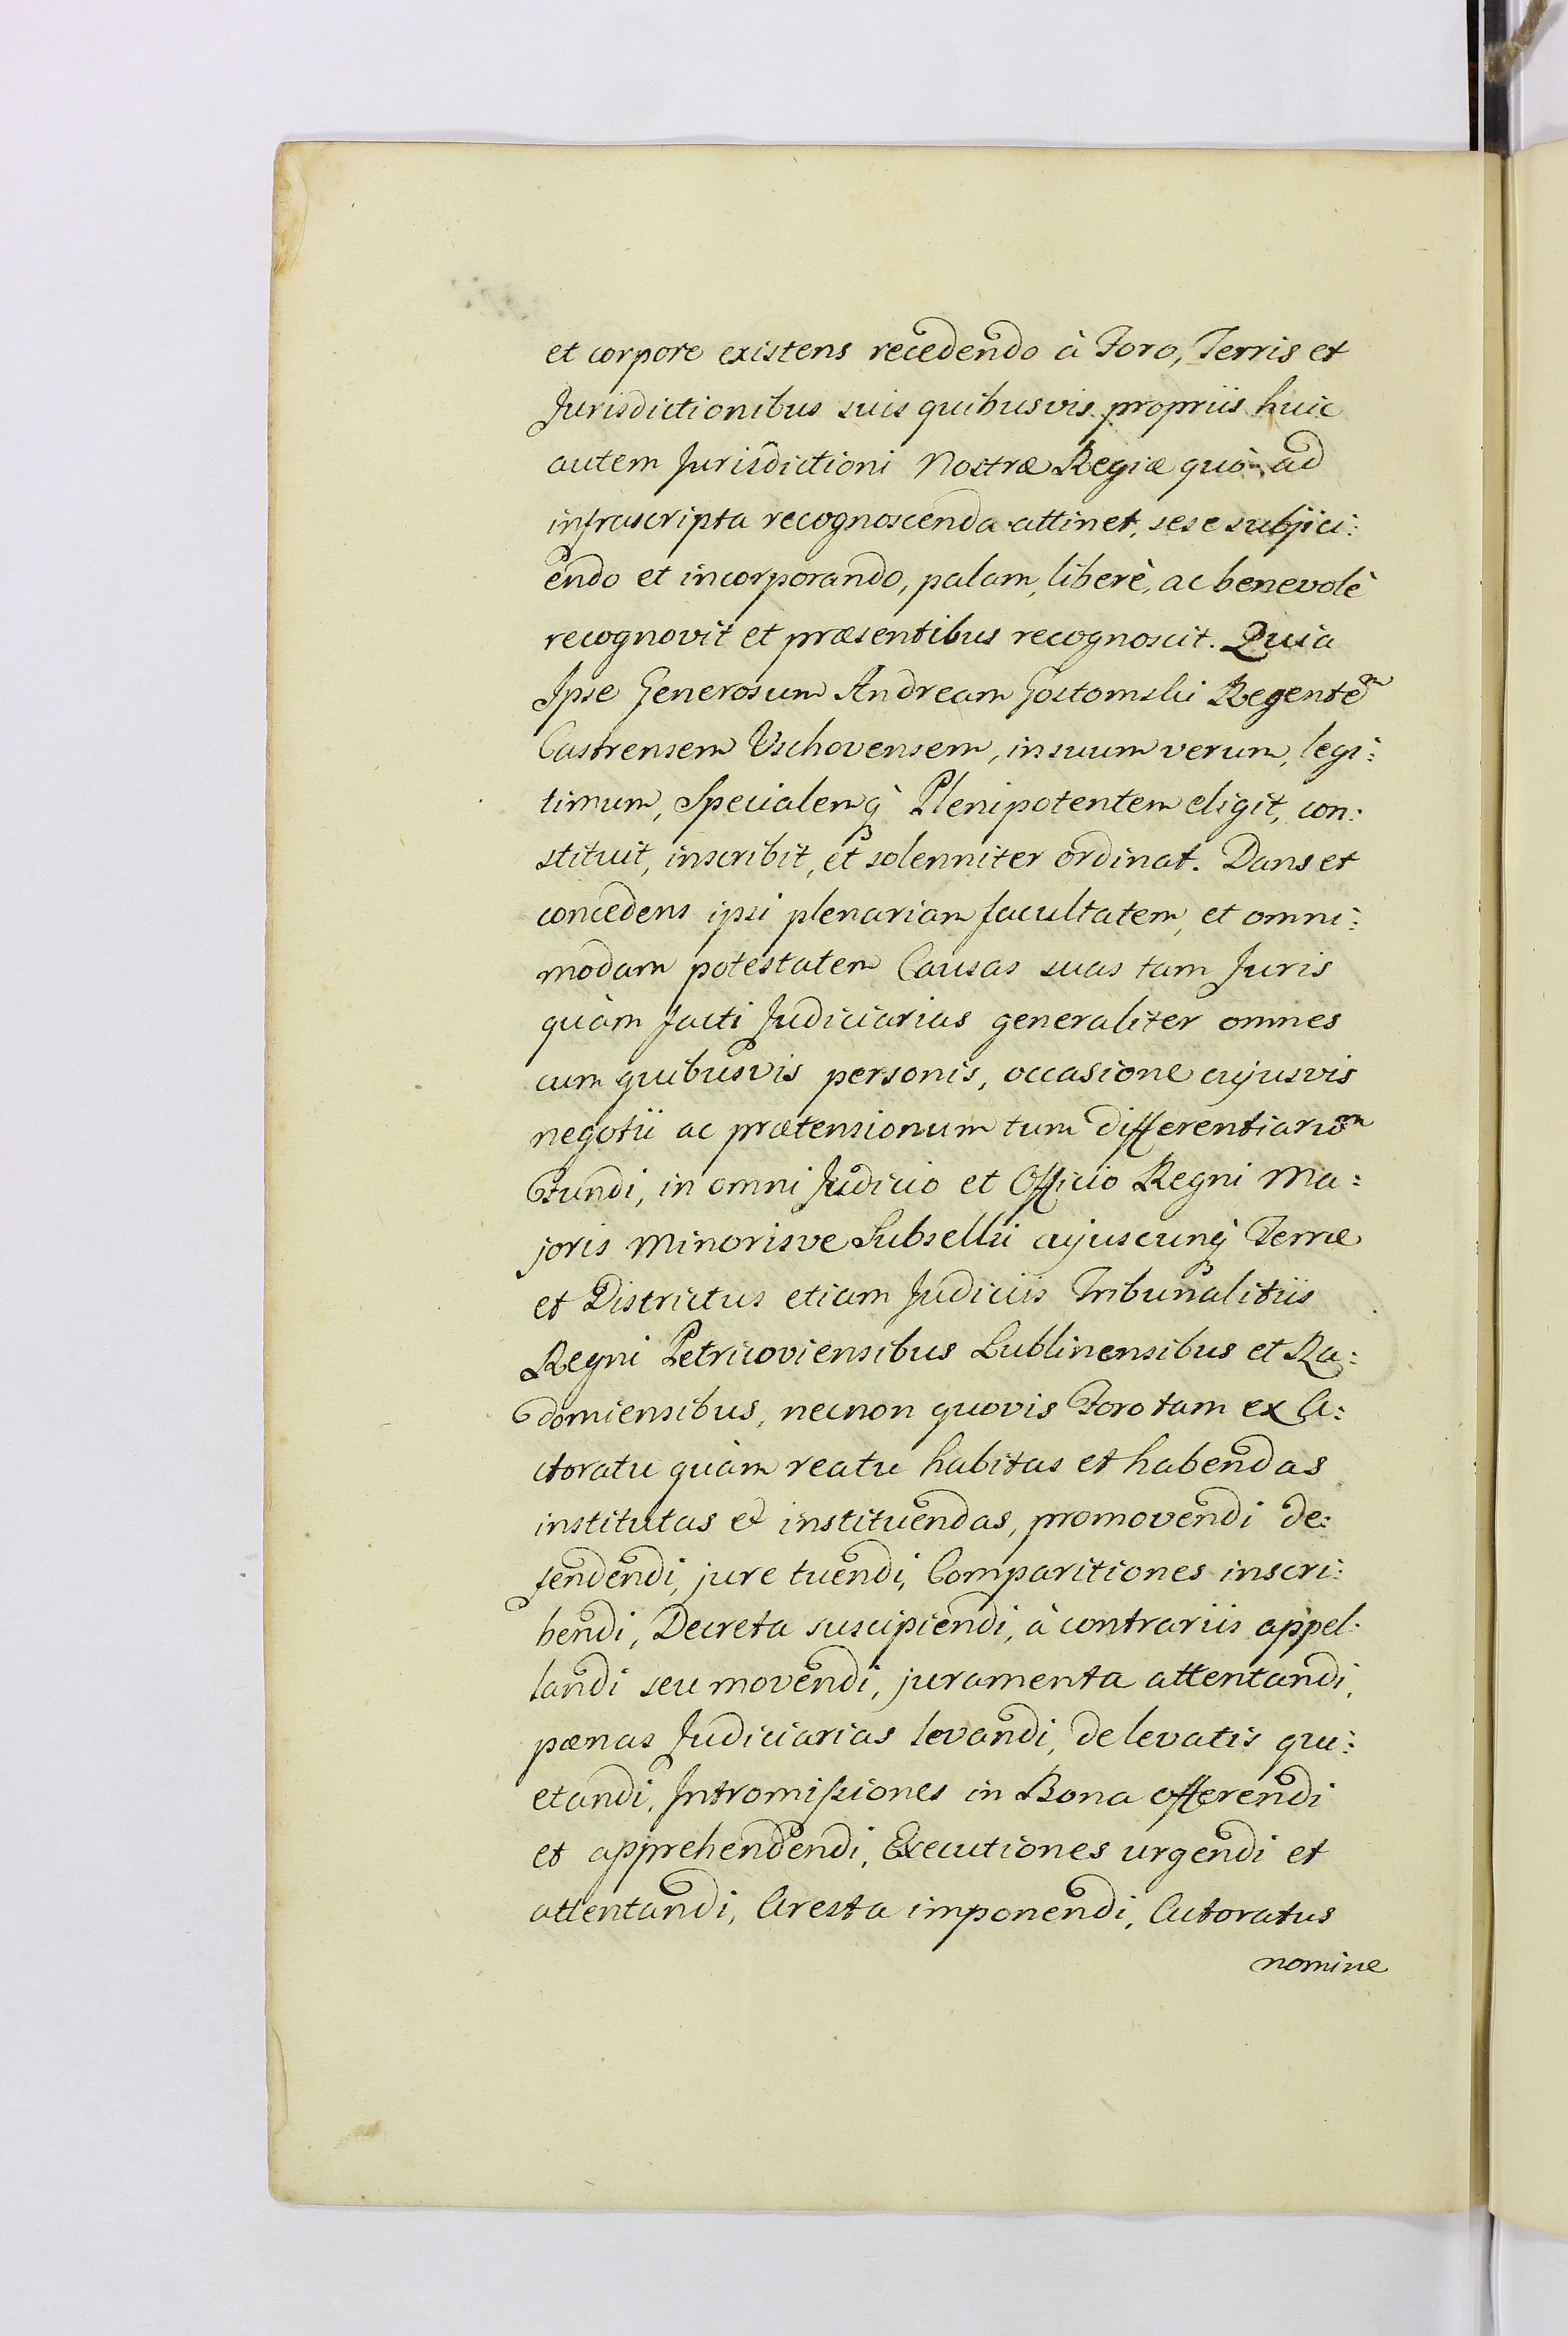 et corpore existens recedendo à Foro, Terris et
Jurisdictionibus suis quibusvis propriis huic
autem Jurisdictioni Nostræ Regiæ quò ad
infrascripta recognoscenda attinet, sese subjici:
endo et incorporando, palam, liberè, ac benevolè
recognovit et præsentibus recognoscit. Quia
Ipse Generosum Andream Gostomski Regentem
Castrensem Vschovensem, in suum verum, legi:
timum, Specialemq̀ Plenipotentem eligit, con:
stituit, inscribit, et solenniter ordinat. Dans et
concedens ipsi plenariam facultatem, et omni:
modam potestatem Causas suas tam Juris
quàm facti Judiciarias generaliter omnes
cum quibusvis personis, occasione cujusvis
negotii ac prætensionum tum differentiarum
Fundi, in omni Judicio et Officio Regni Ma:
joris Minorisve Subsellii cujuscunq̀ Terræ
et Districtus etiam Judiciis Tribunalitiis
Regni Petricoviensibus Lublinensibus et Ra:
domiensibus, necnon quovis Foro tam ex A:
ctoratu quàm reatu habitas et habendas
institutas et instituendas, promovendi de:
fendendi, jure tuendi, Comparitiones inscri:
bendi, Decreta suscipiendi, à contrariis appel:
landi seu movendi, juramenta attentandi,
pœnas Judiciarias levandi, de levatis qui:
etandi, Intromissiones in Bona offerendi
et apprehendendi, Executiones urgendi et
attentandi, Aresta imponendi, Actoratus
nomine